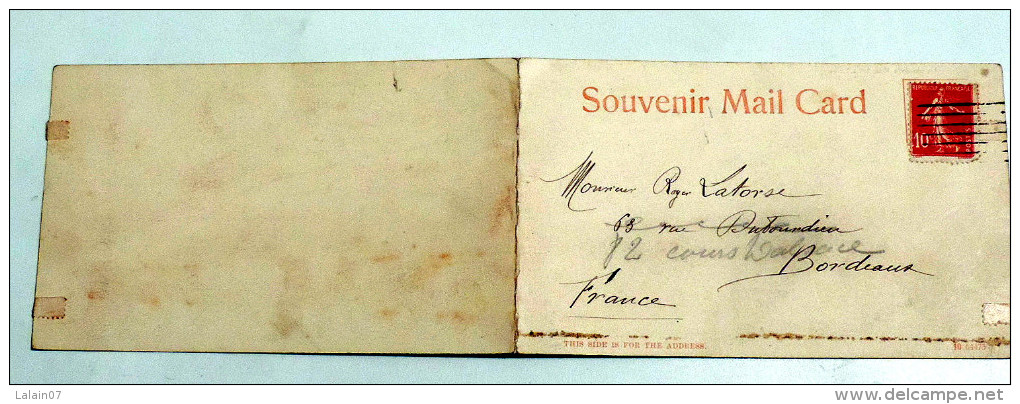 Souvenir Mail Card
REPUBLIQUE FRANÇAISE
10c
Monsieur Roger Latorse
63 rue Dutourdieu
12 cours Balguerie
Bordeaux
France
THIS SIDE IS FOR THE ADDRESS.
Lalain07
www.delcampe.net